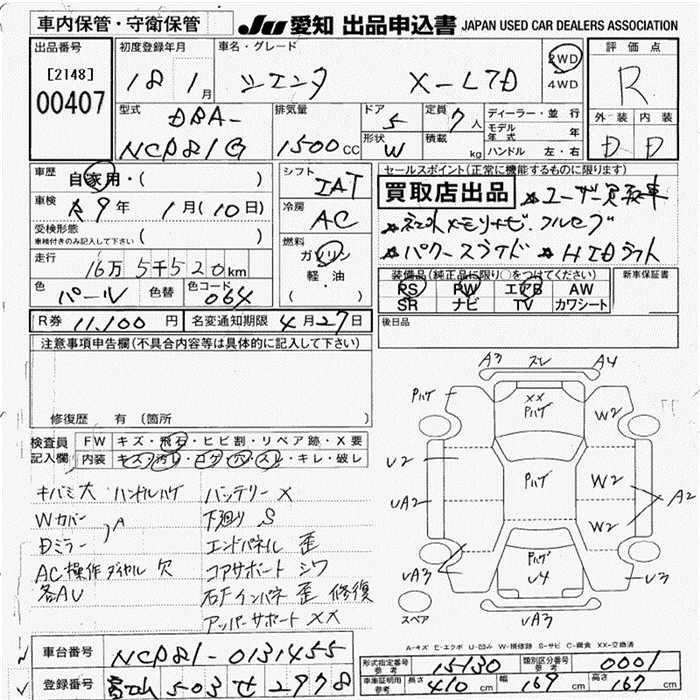 車内保管・守衛保管
JU 愛知 出品申込書 JAPAN USED CAR DEALERS ASSOCIATION
出品番号 [2148] 00407
初度登録年月 18年 1月
車名・グレード シエンタ X-LTD
2WD 4WD
評価点 R
外装 内装 D D
型式 DBA- NCP81G
排気量 1500cc
ドア 5
定員 7人
形状 W
積載 kg
ディーラー・並行
モデル年式 年
ハンドル 左・右
車歴 自家用・( )
車検 9年 1月(10日)
受検形態 車検付きのみ記入して下さい ( )
走行 16万5千520km
色 パール 色替 色コード 064
シフト IAT
冷房 AC
燃料 ガソリン 軽油 ( ・ )
セールスポイント(正常に機能するものに限ります)
買取店出品 ☆ユーザー買取車
☆ネコメモリナビ、フルセグ
☆パワースライド ☆HIDライト
装備品(純正品に限り○をつけてください)
PS PW エアB AW
SR ナビ TV カワシート
新車保証書
後日品
R券 11,100円 名変通知期限 4月27日
注意事項申告欄(不具合内容等は具体的に記入して下さい)
修復歴 有(箇所 )
検査員記入欄
FW キズ・飛石・ヒビ割・リペア跡・X要
内装 キズ・汚れ・コゲ・穴・スレ・キレ・破レ
キバミ大 ハンドルハゲ バッテリーX
Wカバー 下廻りS
Dミラー A エンドパネル 歪
AC操作ダイヤル欠 コアサポート シワ
各AU 右Fインパネ 歪 修復
アッパーサポート XX
A3 スレ A4
Pハゲ XX Pハゲ W2
U2 Pハゲ W2
UA2 W2 A2
UA3 Pハゲ U4 U3
スペア UA3
A-キズ E-エクボ U-凹み W-補修跡 S-サビ C-腐食 XX-交換済
車台番号 NCP81-0131455
登録番号 503 せ 2978
形式指定番号 参考 15130
類別区分番号 参考 0001
車庫証明用 参考 長さ 410cm 幅 169cm 高さ 167cm